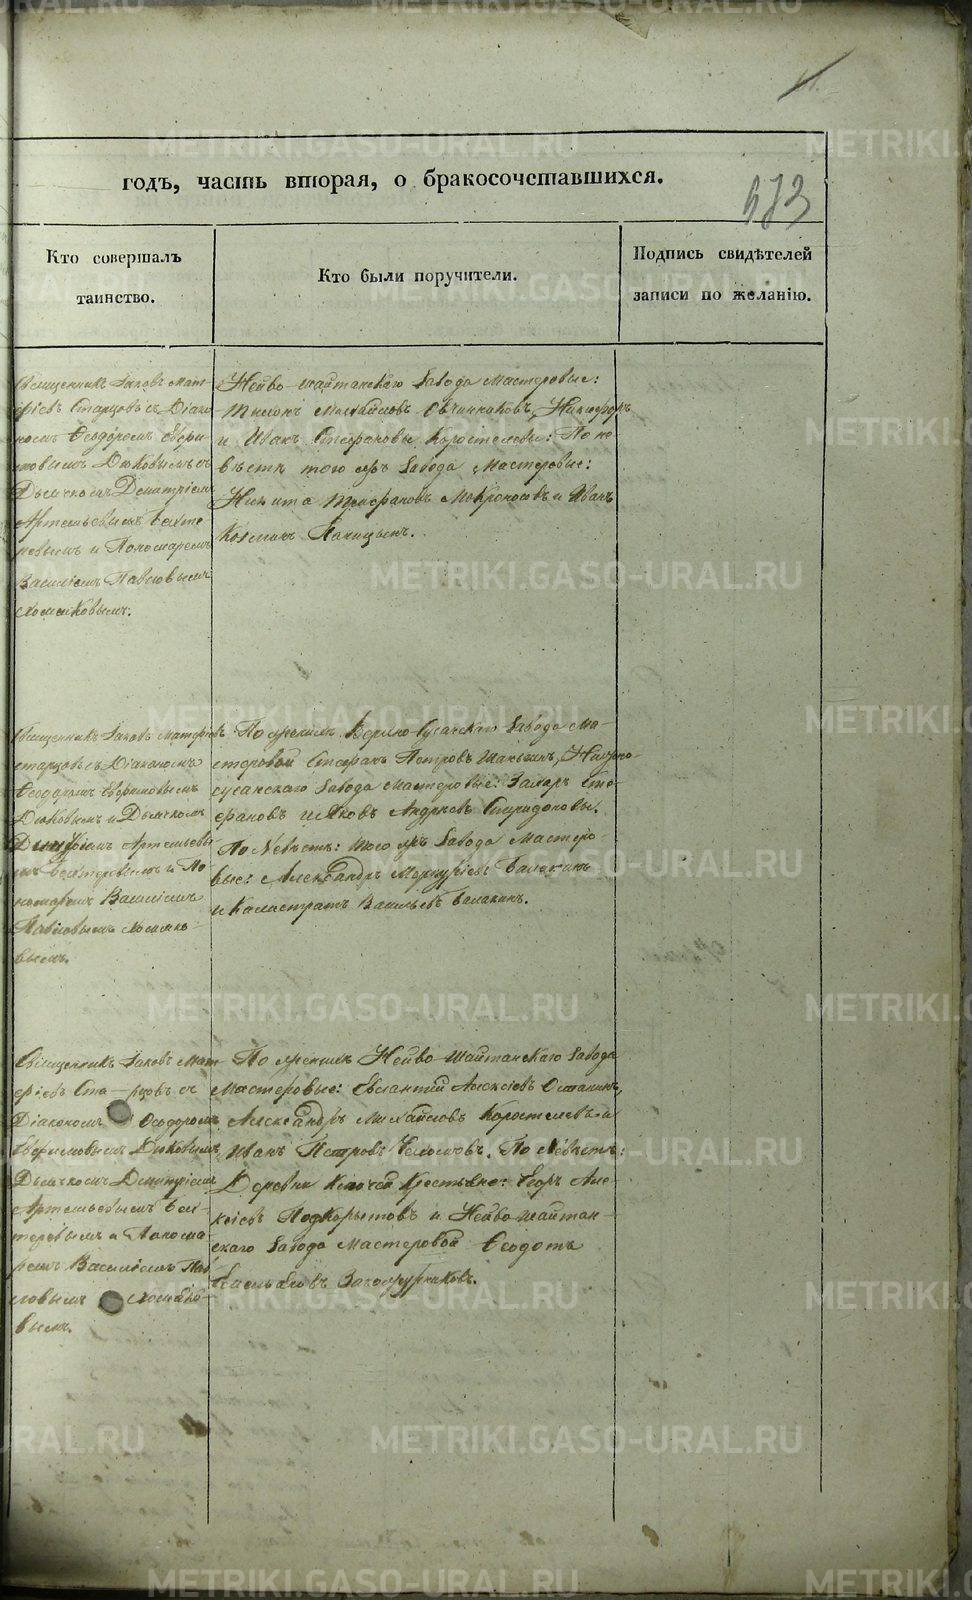 673
годъ, часть вторая, о бракосочетавшихся.
Кто совершалъ
таинство.
Кто были поручители.
Подпись свидѣтелей
записи по желанію.
Священникъ Іаковъ Мат-
ѳіевъ Старцовъ съ Діако
номъ Ѳеодоромъ
Дюковымъ съ
Дьячкомъ Димитріемъ
Артемьевымъ
и Пономаремъ
Василіемъ Павловымъ
Хомяковымъ.
Нейво-шайтанскаго Завода Мастеровые:
Михайловъ Овчинниковъ, Никифоръ
и Иванъ Стефановы Коростелевы: По не-
вѣстѣ того жъ Завода Мастеровые:
Никита Мокроносовъ и Иванъ
Козминъ
Священникъ Іаковъ Матѳіевъ
Старцовъ съ Діакономъ
Ѳеодоромъ
Дюковымъ и Дьячкомъ
Димитріемъ Артемьевы
и По
номаремъ Василіемъ
Павловымъ Хомяко-
вымъ.
По женихѣ Верхне-Сусанскаго Завода Ма-
стеровой Стефанъ Петровъ Нижне-
сусанскаго Завода Мастеровые: Захаръ Сте-
фановъ и Яковъ Андреевъ Спиридоновы.
По Невѣстѣ: того жъ Завода Мастеро-
вые: Александръ Меркурьевъ Балакинъ
и Калистратъ Васильевъ Балакинъ.
Священникъ Іаковъ Мат-
ѳіевъ Ста-рцовъ съ
Діакономъ Ѳеодоромъ
Дюковымъ,
Дьячкомъ Димитріемъ
Артемьевымъ
и Понома
ремъ Василіемъ Пав
ловымъ Хомяко-
вымъ.
По женихѣ Нейво-шайтанскаго Завода
Мастеровые: Алексѣевъ Останинъ,
Александръ Михайловъ Коростелевъ и
Иванъ Петровъ По Невѣстѣ:
Деревни Ключей Крестьяне: Егоръ Але-
ксѣевъ Подкорытовъ и Нейво-шайтан-
скаго Завода Мастеровой Ѳеодотъ
METRIKI.GASO-URAL.RU